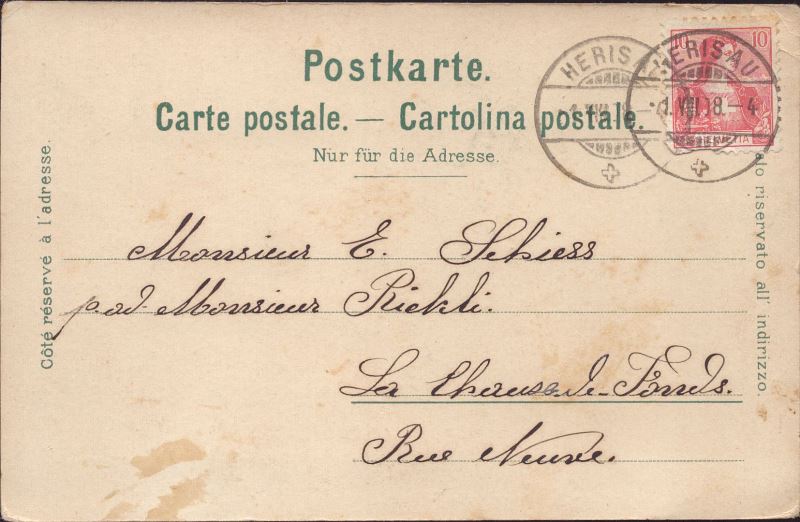 Postkarte.
Carte postale. — Cartolina postale.
Nur für die Adresse.
Côté réservé à l'adresse.
lato riservato all' indirizzo.
10 10
HELVETIA
HERISAU
HERISAU
1.VII.18.–4
Monsieur E. Schiess
p. ad. Monsieur Rickli.
La Chaux-de-Fonds.
Rue Neuve.